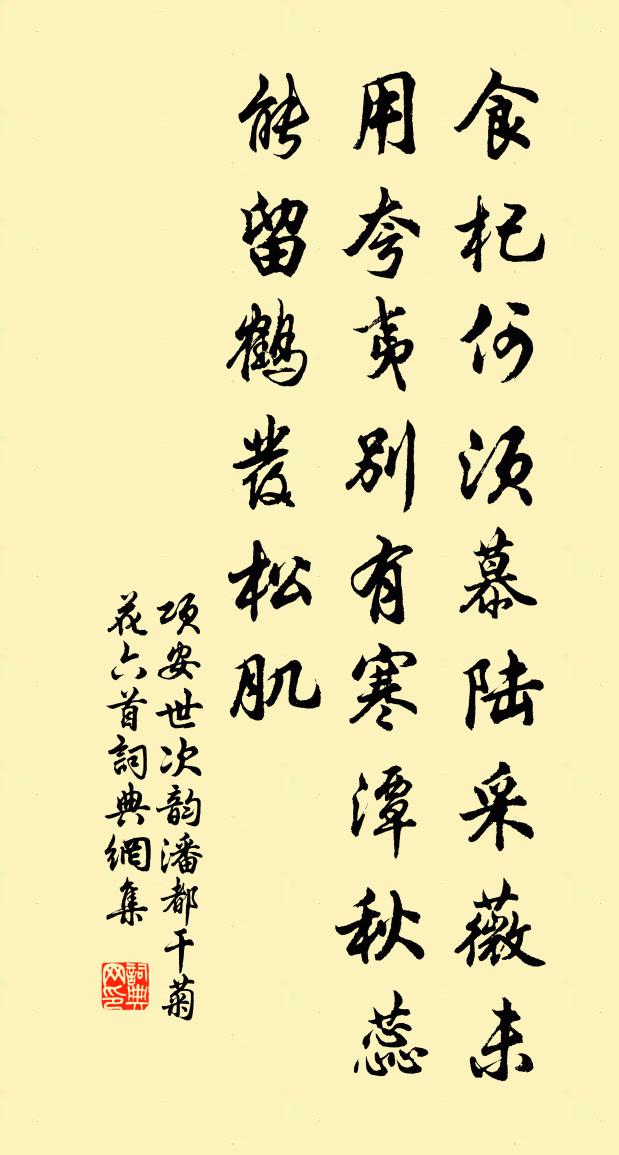 食杞何须慕陆采薇未
用夸夷别有寒潭秋蕊
能留鹤发松肌
项安世次韵潘都干菊
花六首詞典網集
詞典网印